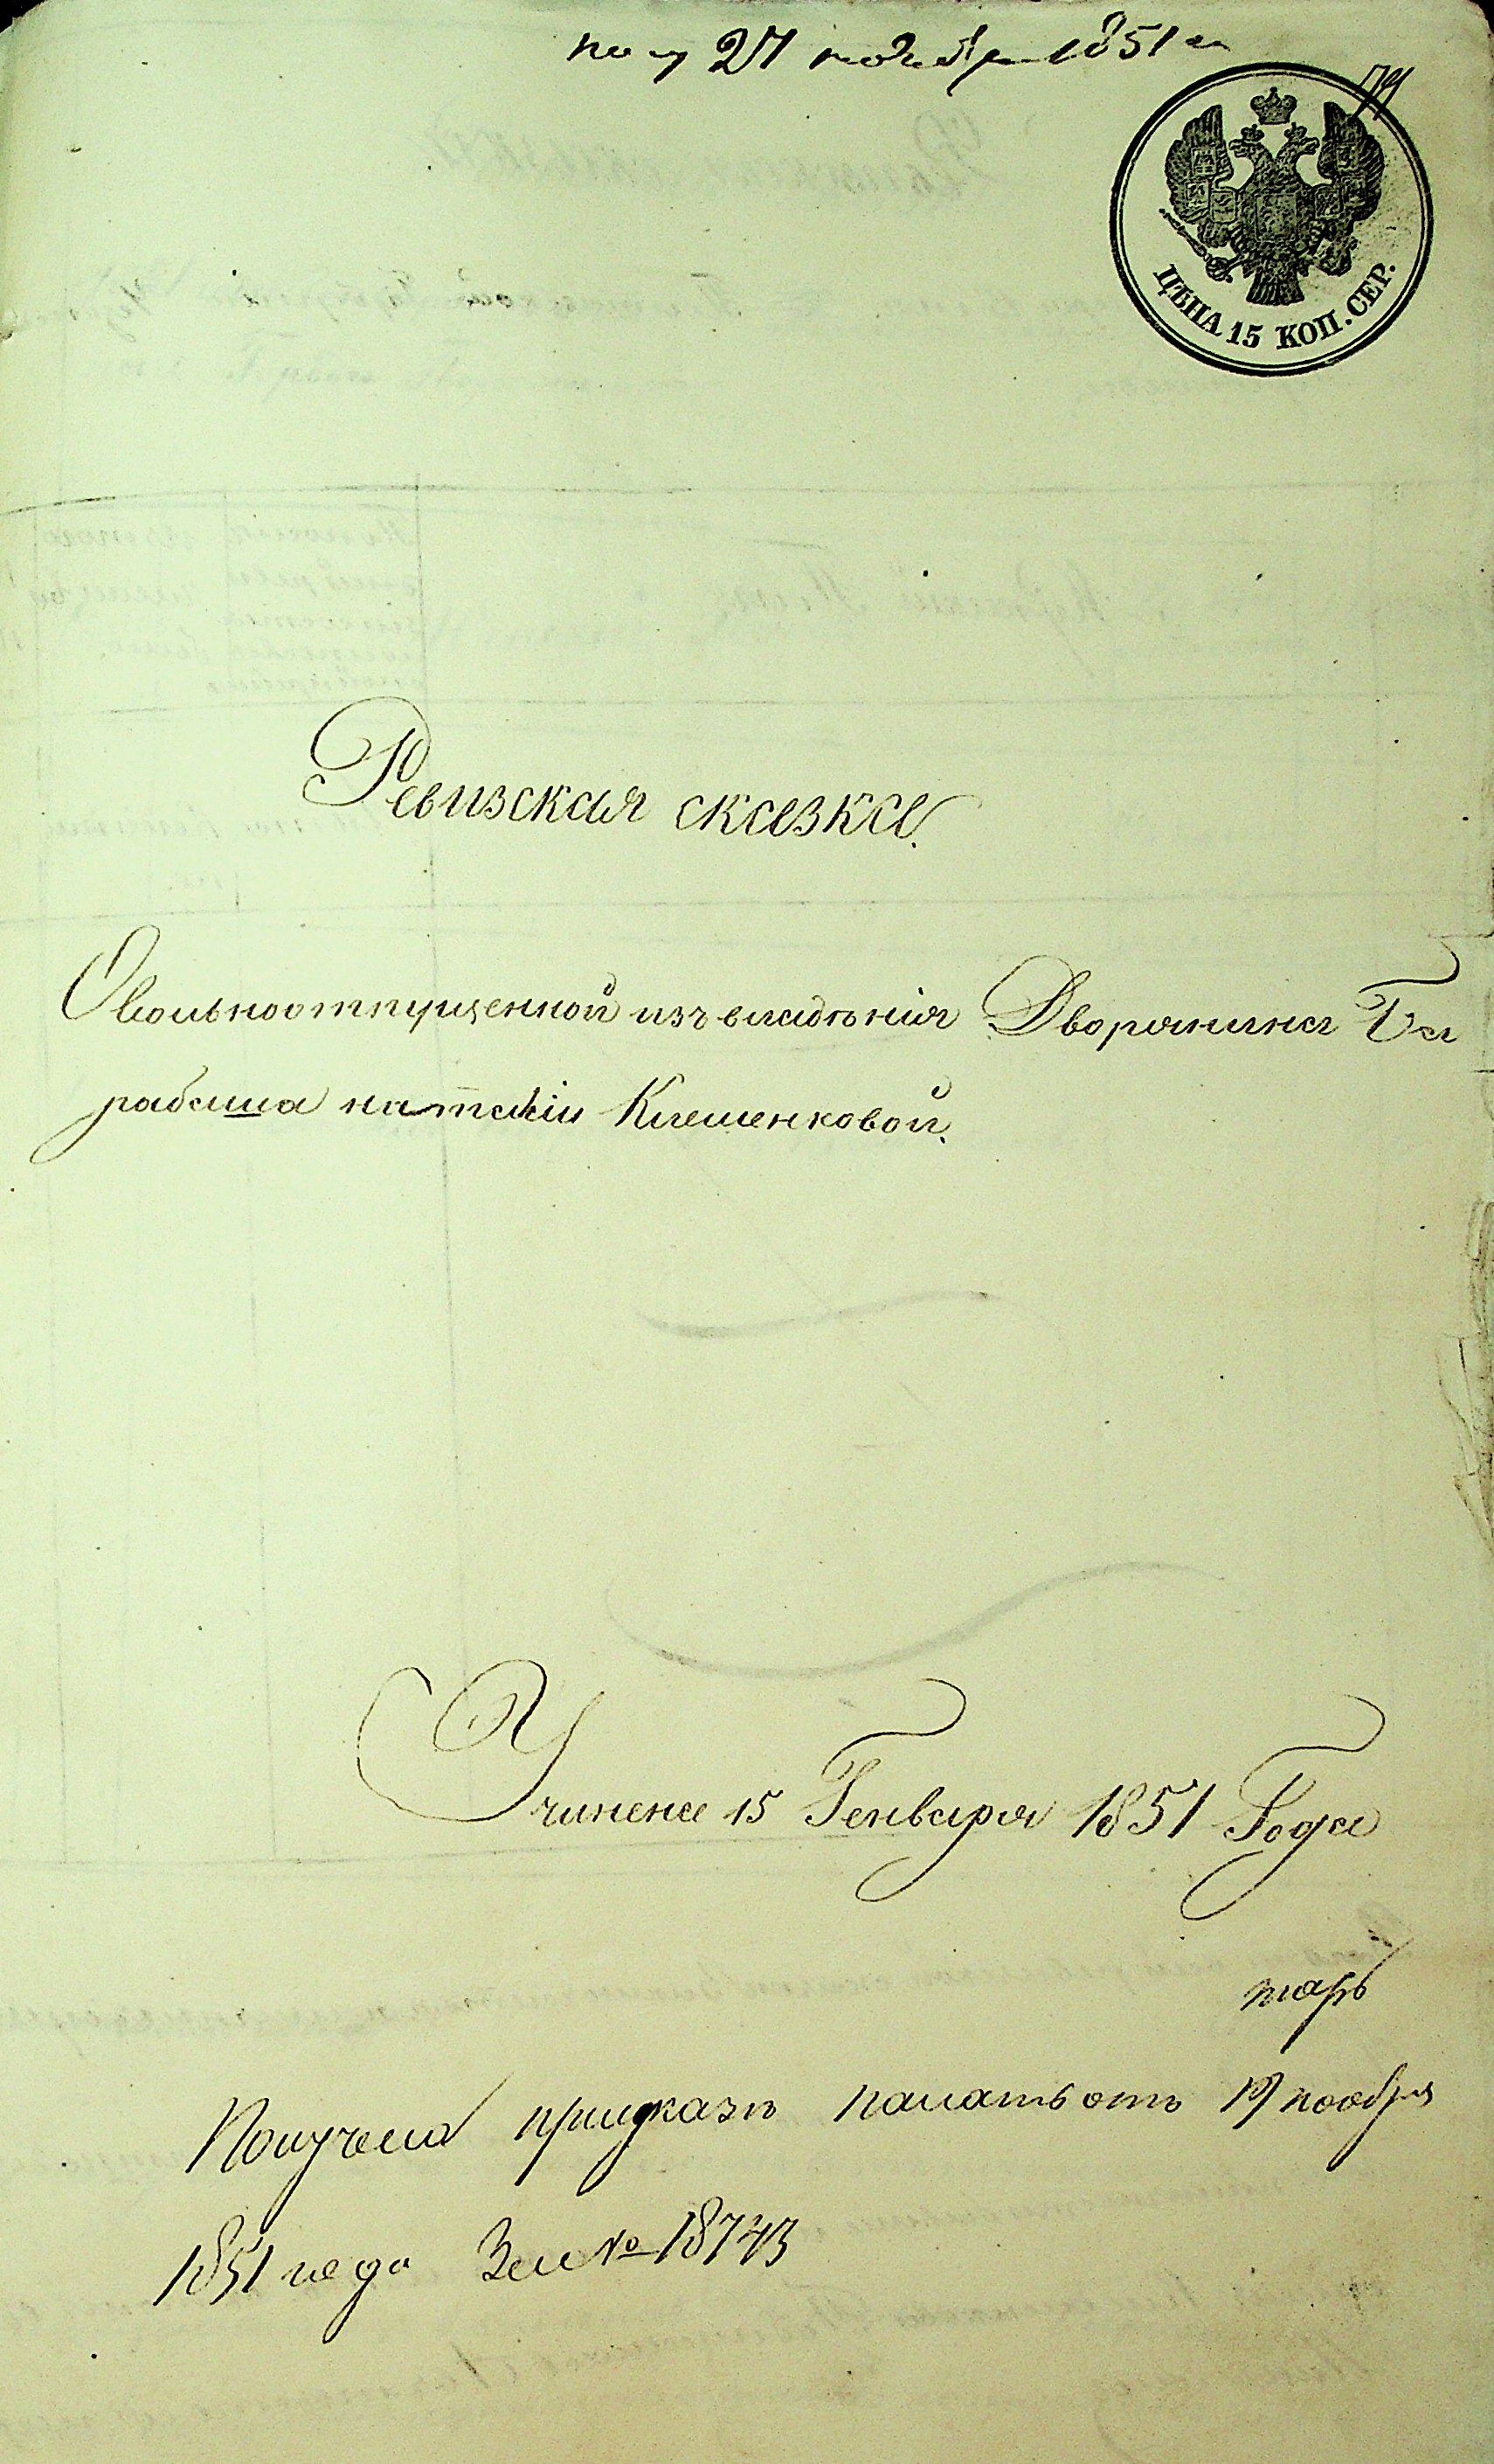 пол 27 ноября 1851 го
ЦѢНА 15 КОП. СЕР.
Ревизская сказка.
О вольноотпущенной изъ владѣнія Дворянина Ба
рабаша Клешенковой.
Учинена 15 Генваря 1851 Года
Получена при указѣ палаты отъ 19 ноября
1851 года За № 18743